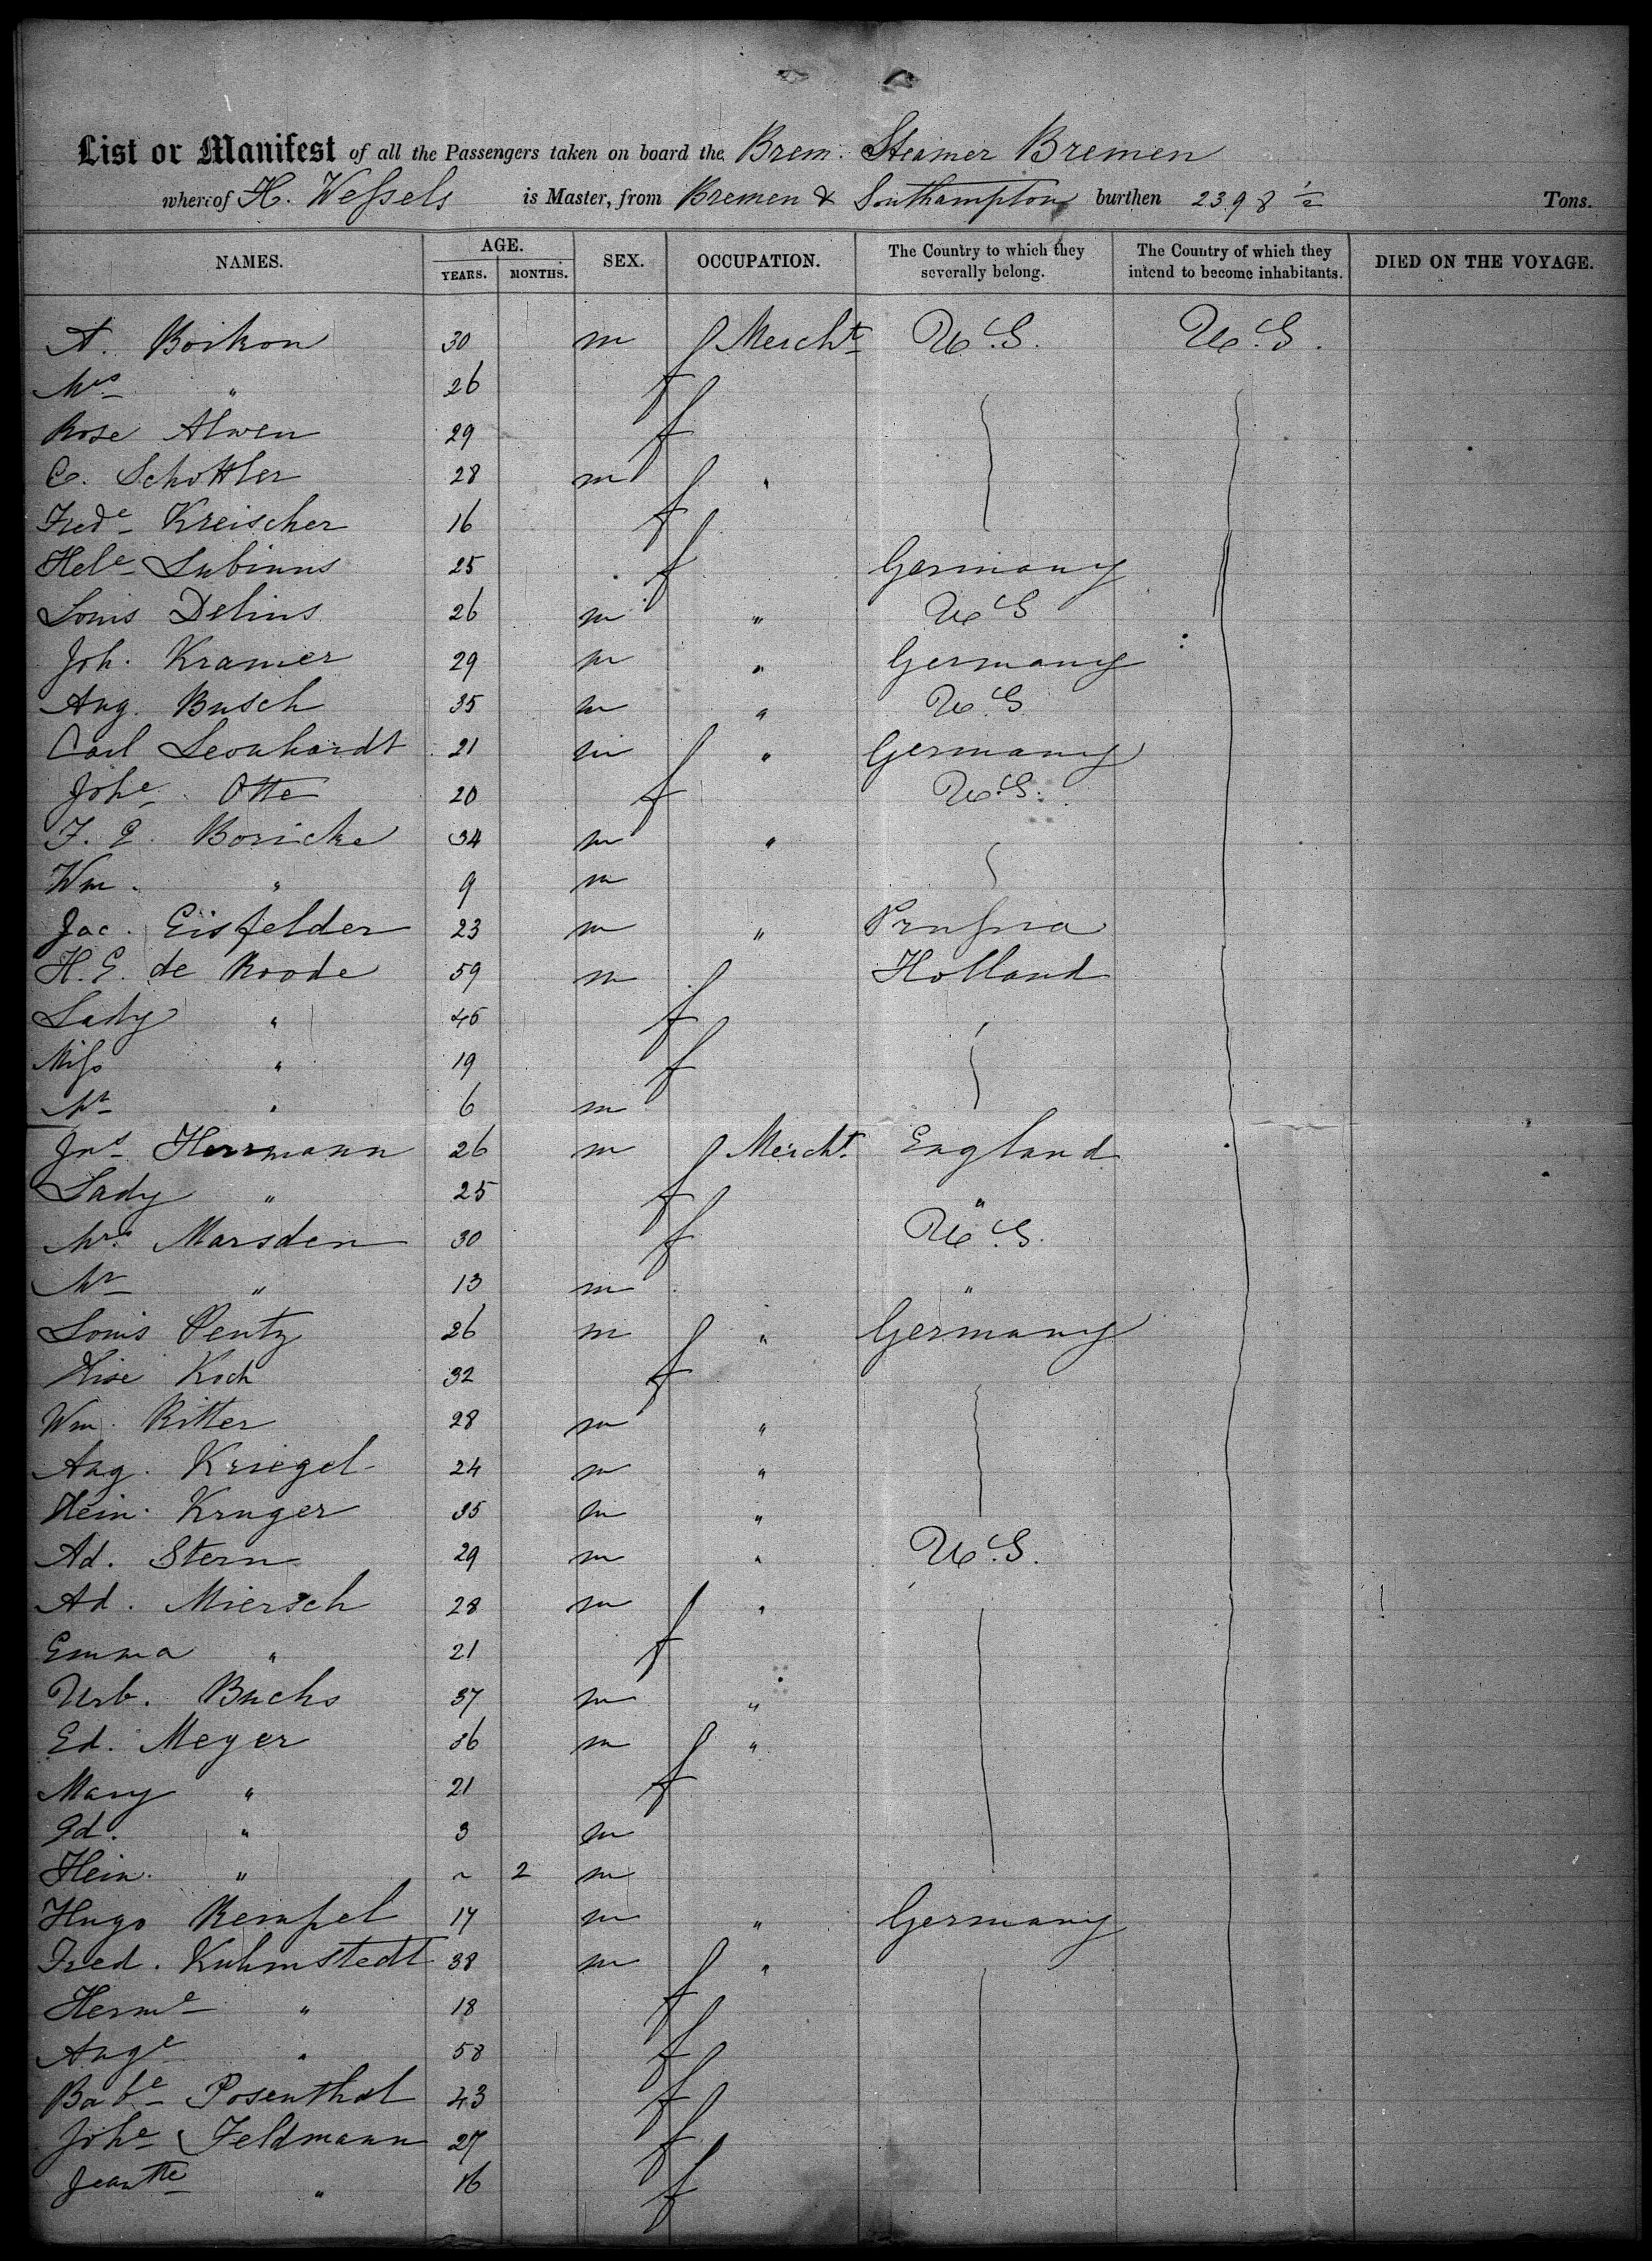 List or Manifest of all the Passengers taken on board the Brem. Steamer Bremen
whereof H. Wessels is Master, from Bremen & Southampton burthen 2398 1/2 Tons.
NAMES. AGE. YEARS. MONTHS. SEX. OCCUPATION. The Country to which they severally belong. The Country of which they intend to become inhabitants. DIED ON THE VOYAGE.
A. Boikon 30 m Mercht U.S. U.S.
Mrs " 26 f
Rose Alwen 29 f
C. Schottler 28 m "
Frede Kreischer 16 f
Hele Lubinus 25 f Germany
Louis Delius 26 m " U.S
Joh. Kramer 29 m " Germany
Aug. Busch 35 m " U.S.
Carl Leonhardt 21 m " Germany
Johe Otte 20 f U.S.
F. E. Boricke 34 m "
Wm. " 9 m
Jac. Eisfelder 23 m " Prussia
H. E. de Roode 59 m Holland
Lady " 46 f
Miss " 19 f
Mr " 6 m
Jns Herrmann 26 m Mercht. England
Lady " 25 f "
Mrs. Marsden 30 f U.S.
Mr " 13 m "
Louis Pentz 26 m " Germany
Koch 32 f
Wm. Ritter 28 m "
Aug. Kriegel 24 m "
Hein. Kruger 35 m "
Ad. Stern 29 m " U.S.
Ad. Miersch 28 m "
Emma " 21 f
Urb. Buchs 37 m "
Ed. Meyer 36 m "
Mary " 21 f
Ed. " 3 m
Hein. " ~ 2 m
Hugo Rempel 17 m " Germany
Fred. Kuhmstedt 38 m "
Herme " 18 f
Auge " 58 f
Babe Rosenthal 43 f
Johe Feldmann 27 f
Jeantte " 16 f